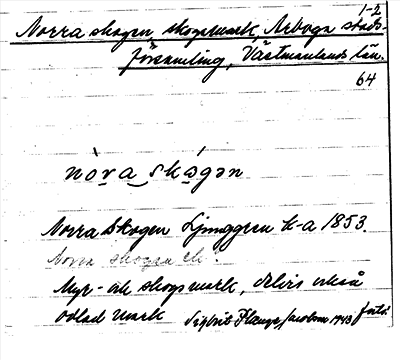 1-2
Norra skogen, skogsmark, Arboga stads-
församling, Västmanlands län.
64
nò̱ra ská̱gən
Norra Skogen Ljunggren k-a 1853.
Norra skogen
Myr- och skogsmark, delvis också
odlad mark Sigbrit Jacobson 1943 forts.